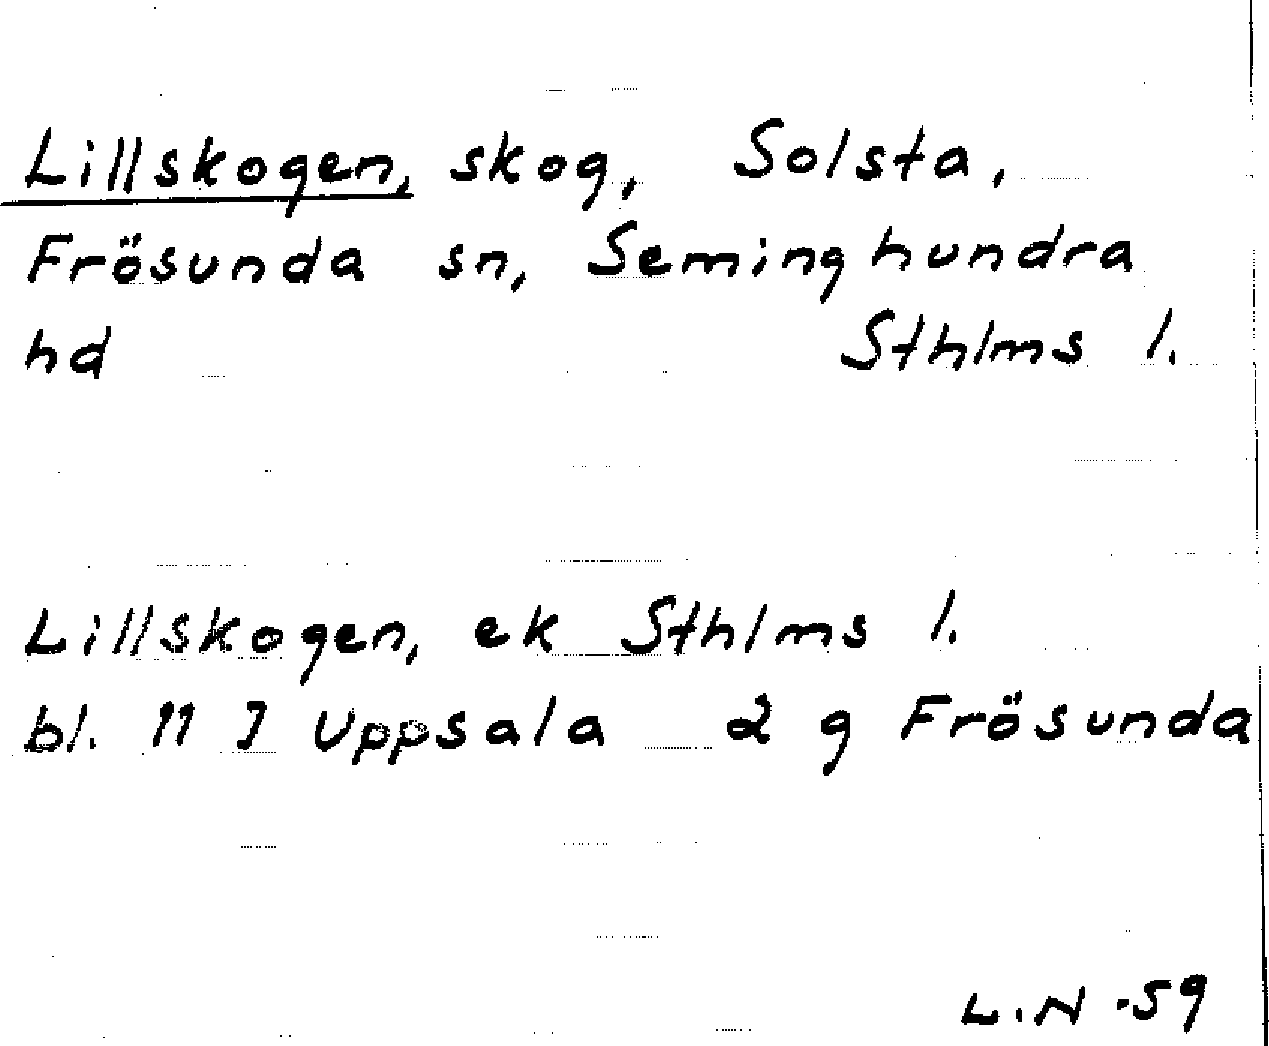 Lillskogen, skog, Solsta,
Frösunda sn, Seminghundra
hd Sthlms l.
Lillskogen, ek Sthlms l.
bl. 11 I Uppsala 2 g Frösunda
L.N -59